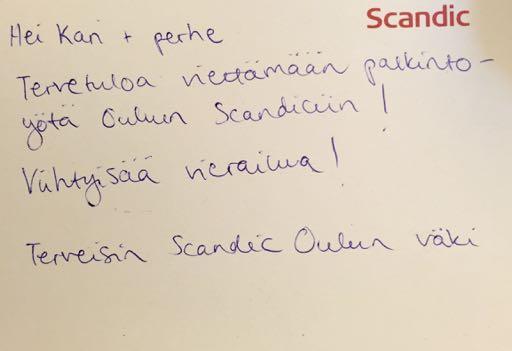 Scandic
Hei Kari + perhe
Tervetuloa viettämään palkinto-
yötä Oulun Scandiciin!
Viihtyisää vierailua!
Terveisin Scandic Oulun väki